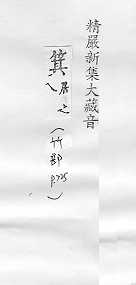 精嚴新集大藏音
箕
居之
(竹部
p.725
)